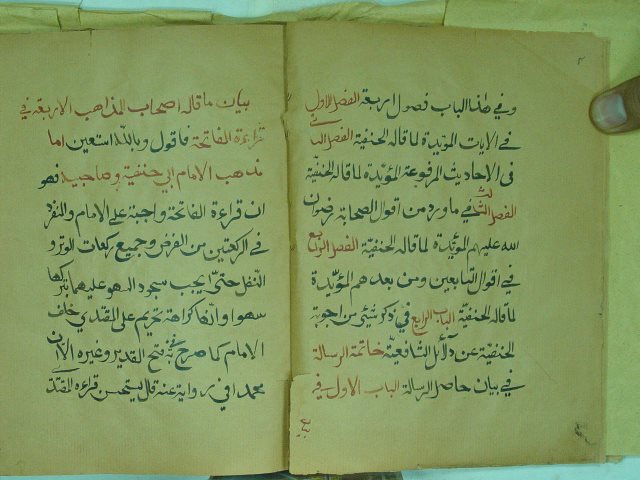 وفي هذا الباب فصول اربعة الفصل الاول
في الايات المؤيدة لما قاله الحنفية الفصل الثاني
في الاحاديث المرفوعة المؤيدة لما قاله الحنفية
الفصل الثالث في ما ورد من اقوال الصحابة رضوان
الله عليهم المؤيدة لما قاله الحنفية الفصل الرابع
في اقوال التابعين ومن بعدهم المؤيدة
لما قاله الحنفية الباب الرابع في ذكر شيئ من اجوبة
الحنفية عن دلائل الشافعية خاتمة الرسالة
في بيان حاصل الرسالة الباب الاول في
بيان
بيان ما قاله اصحاب المذاهب الاربعة في
قراءة الفاتحة فاقول وبالله استعين اما
مذهب الامام ابي حنيفة وصاحبيه فهو
ان قراءة الفاتحة واجبة على الامام والمنفرد
في الركعتين من الفرض وجميع ركعات الوتر و
النفل حتى يجب سجود السهو عليهما بتركها
سهوا وانها كراهة تحريم على المقتدي خلف
الامام كما صرح به في فتح القدير وغيره الا ان
محمدا في رواية عنه قال يستحسن قراءة المقتدي